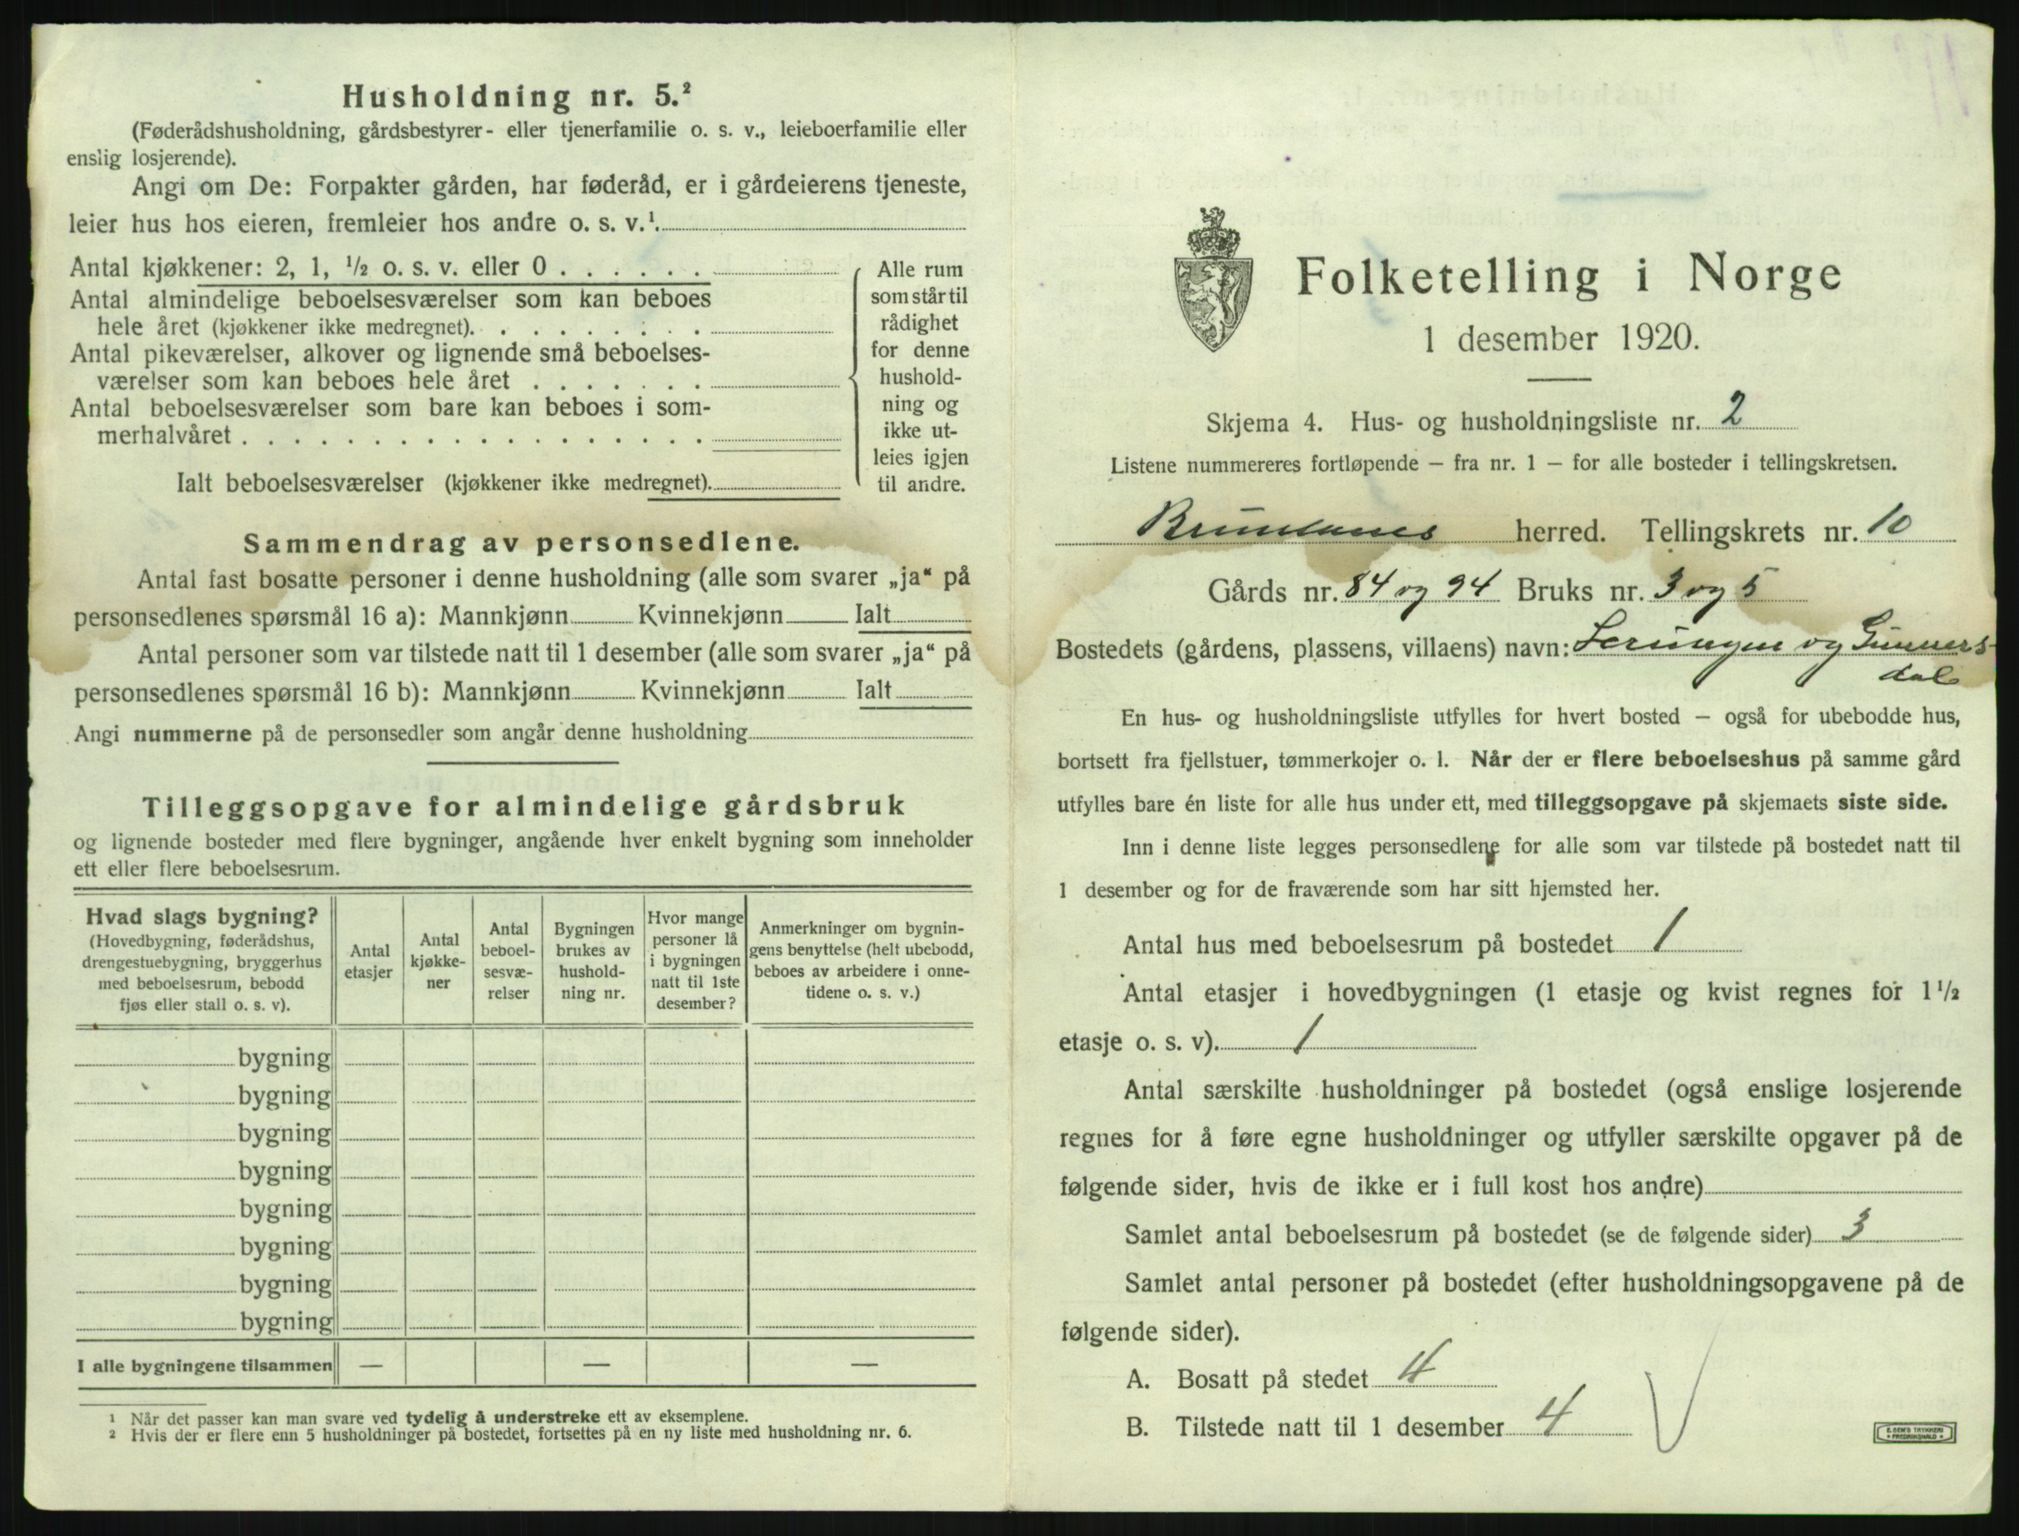 Husholdning nr. 5.²
(Føderådshusholdning, gårdsbestyrer- eller tjenerfamilie o. s. v., leieboerfamilie eller
enslig losjerende).
Angi om De: Forpakter gården, har føderåd, er i gårdeierens tjeneste,
leier hus hos eieren, fremleier hos andre o. s. v.¹.
Antal kjøkkener: 2, 1, ½ o. s. v. eller 0 . . . . . .
Antal almindelige beboelsesværelser som kan beboes
hele året (kjøkkener ikke medregnet). . . . . . . . .
Antal pikeværelser, alkover og lignende små beboelses-
værelser som kan beboes hele året . . . . . . .
Antal beboelsesværelser som bare kan beboes i som-
merhalvåret . . . . . . . . . . . . . . . . . .
Ialt beboelsesværelser (kjøkkener ikke medregnet).
Alle rum
som står til
rådighet
for denne
hushold-
ning og
ikke ut-
leies igjen
til andre.
Sammendrag av personsedlene.
Antal fast bosatte personer i denne husholdning (alle som svarer „ja“ på
personsedlenes spørsmål 16 a): Mannkjønn Kvinnekjønn Ialt
Antal personer som var tilstede natt til 1 desember (alle som svarer „ja“ på
personsedlenes spørsmål 16 b): Mannkjønn Kvinnekjønn Ialt
Angi nummerne på de personsedler som angår denne husholdning
Tilleggsopgave for almindelige gårdsbruk
og lignende bosteder med flere bygninger, angående hver enkelt bygning som inneholder
ett eller flere beboelsesrum.
Hvad slags bygning?
(Hovedbygning, føderådshus,
drengestuebygning, bryggerhus
med beboelsesrum, bebodd
fjøs eller stall o. s. v).
Antal
etasjer
Antal
kjøkke-
ner
Antal
beboel-
sesvæ-
relser
Bygningen
brukes av
hushold-
ning nr.
Hvor mange
personer lå
i bygningen
natt til 1ste
desember?
Anmerkninger om bygnin-
gens benyttelse (helt ubebodd,
beboes av arbeidere i onne-
tidene o. s. v.)
bygning
bygning
bygning
bygning
bygning
bygning
bygning
bygning
I alle bygningene tilsammen — — —
¹ Når det passer kan man svare ved tydelig å understreke ett av eksemplene.
² Hvis der er flere enn 5 husholdninger på bostedet, fortsettes på en ny liste med husholdning nr. 6.
Folketelling i Norge
1 desember 1920.
Skjema 4. Hus- og husholdningsliste nr. 2
Listene nummereres fortløpende – fra nr. 1 – for alle bosteder i tellingskretsen.
Brunlanes herred. Tellingskrets nr. 10
Gårds nr. 84 og 94 Bruks nr. 3 og 5
Bostedets (gårdens, plassens, villaens) navn: og Gunners-
dal
En hus- og husholdningsliste utfylles for hvert bosted – også for ubebodde hus,
bortsett fra fjellstuer, tømmerkojer o. l. Når der er flere beboelseshus på samme gård
utfylles bare én liste for alle hus under ett, med tilleggsopgave på skjemaets siste side.
Inn i denne liste legges personsedlene for alle som var tilstede på bostedet natt til
1 desember og for de fraværende som har sitt hjemsted her.
Antal hus med beboelsesrum på bostedet 1
Antal etasjer i hovedbygningen (1 etasje og kvist regnes for 1½
etasje o. s. v). 1
Antal særskilte husholdninger på bostedet (også enslige losjerende
regnes for å føre egne husholdninger og utfyller særskilte opgaver på de
følgende sider, hvis de ikke er i full kost hos andre)
Samlet antal beboelsesrum på bostedet (se de følgende sider) 3
Samlet antal personer på bostedet (efter husholdningsopgavene på de
følgende sider).
A. Bosatt på stedet 4
B. Tilstede natt til 1 desember 4
E. SEM'S TRYKKERI
FREDRIKSHALD